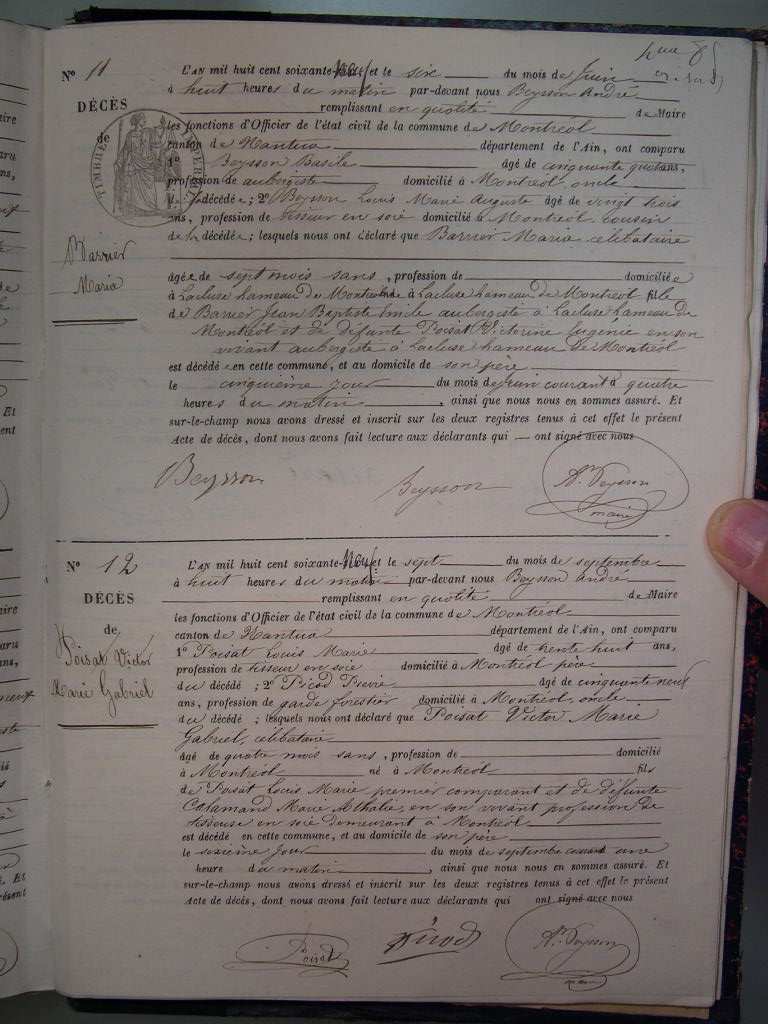 N° 11
DÉCÈS
de
Barrier
Maria
L'AN mil huit cent soixante-neuf et le sixe du mois de Juin
à huit heures du matin par-devant nous Beysson André
remplissant en qualité de Maire
les fonctions d'Officier de l'état civil de la commune de Montréol
canton de Nantua département de l'Ain, ont comparu
1° Beysson Basile âgé de cinquante quatre ans,
profession de aubergiste domicilié à Montréol, oncle
de la décédée; 2° Beysson Louis Marie Auguste âgé de vingt trois
ans, profession de tisseur en soie domicilié à Montréol, cousin
de la décédée; lesquels nous ont déclaré que Barrier Maria celibataire
âgée de sept mois sans, profession de domiciliée
à Lacluse hameau de Montréol née à Lacluse hameau de Montreol fille
de Barrier Jean Baptiste Emile aubergiste à Lacluse hameau de
Montréol et de défunte Poisat Victorine Eugenie en son
vivant aubergiste à Lacluse hameau de Montréol
est décédée en cette commune, et au domicile de son père
le cinquième jour du mois de juin courant à quatre
heures du matin, ainsi que nous nous en sommes assuré. Et
sur-le-champ nous avons dressé et inscrit sur les deux registres tenus à cet effet le présent
Acte de décès, dont nous avons fait lecture aux déclarants qui — ont signé avec nous
Beysson Beysson An. Beysson
maire
N° 12
DÉCÈS
de
Poisat Victor
Marie Gabriel
L'AN mil huit cent soixante-neuf et le sept du mois de septembre
à huit heures du matin par-devant nous Beysson André
remplissant en qualité de Maire
les fonctions d'Officier de l'état civil de la commune de Montréol
canton de Nantua département de l'Ain, ont comparu
1° Poisat Louis Marie âgé de trente huit ans,
profession de tisseur en soie domicilié à Montréol père
du décédé; 2° Picod Pierre âgé de cinquante neuf
ans, profession de garde forestier domicilié à Montréol, oncle
du décédé; lesquels nous ont déclaré que Poisat Victor Marie
Gabriel, celibataire
âgé de quatre mois sans, profession de domicilié
à Montréol né à Montréol fils
de Poisat Louis Marie premier comparant et de défunte
Catamand Marie Athalie, en son vivant profession de
tisseuse en soie demeurant à Montréol
est décédé en cette commune, et au domicile de son père
le sixième jour du mois de septembre courant à une
heure du matin, ainsi que nous nous en sommes assuré. Et
sur-le-champ nous avons dressé et inscrit sur les deux registres tenus à cet effet le présent
Acte de décès, dont nous avons fait lecture aux déclarants qui ont signé avec nous
Poisat Picod An. Beysson
maire